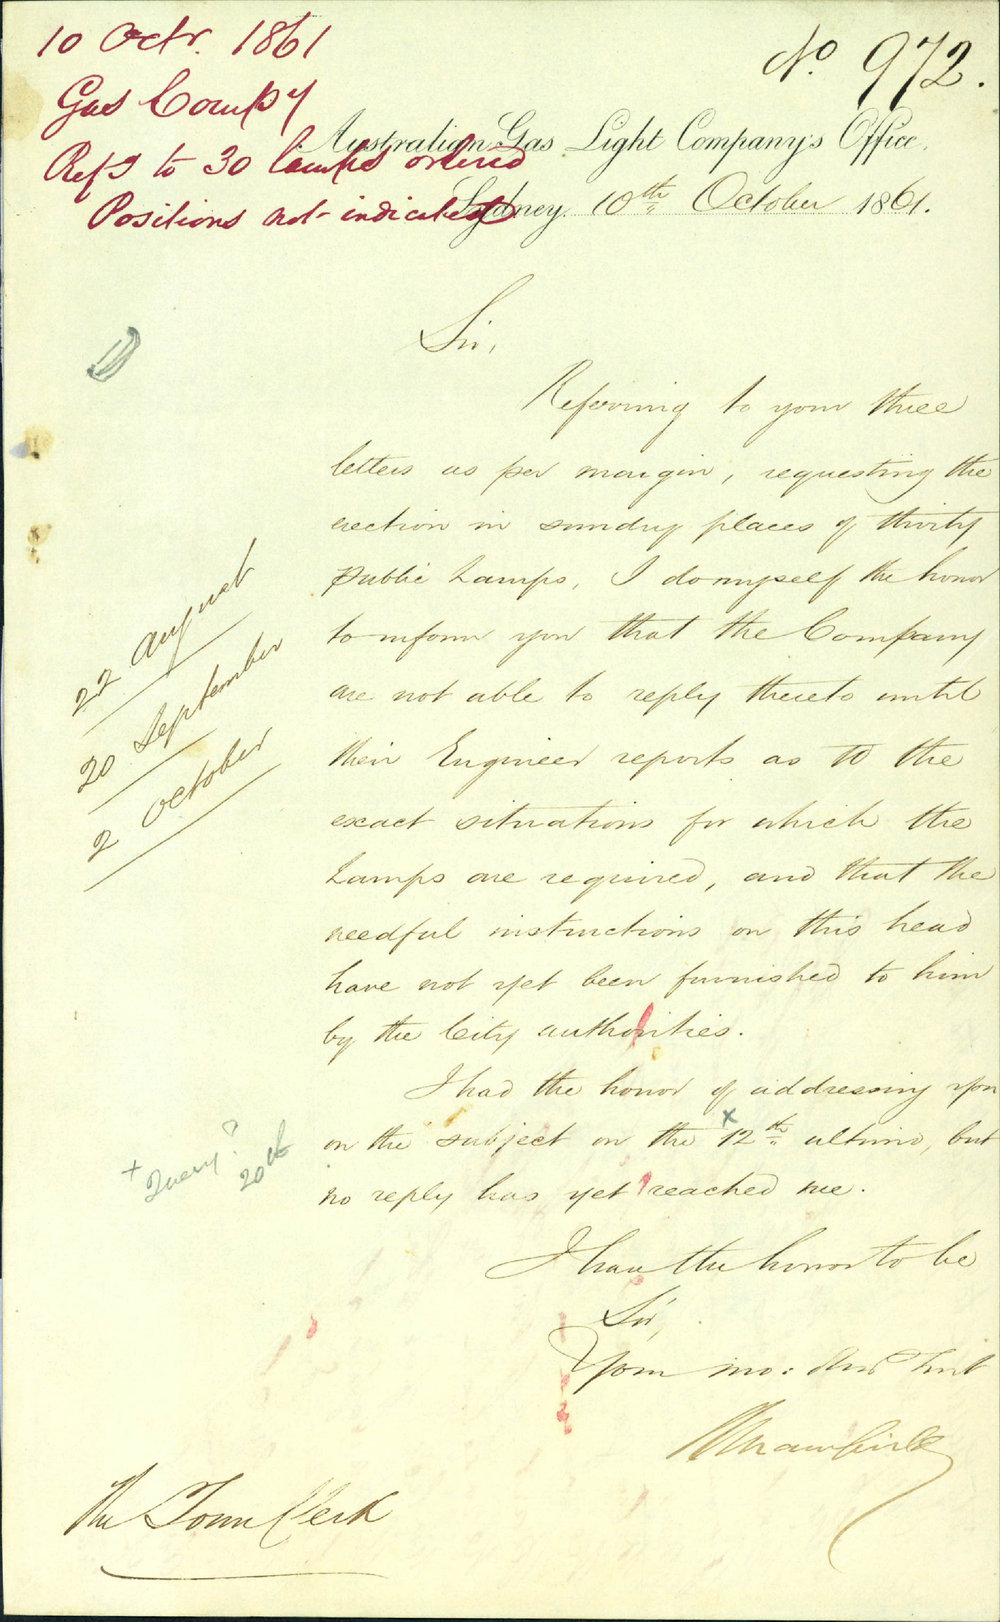 10 Octr. 1861
Gas Compy
Refs to 30 lamps ordered
Positions not indicated
No. 972.
Australian Gas Light Company's Office,
Sydney. 10th October 1861.
Sir,
Referring to your three
letters as per margin, requesting the
erection in sundry places of thirty
Public Lamps, I do myself the honor
to inform you that the Company
are not able to reply thereto until
their Engineer reports as to the
exact situations for which the
Lamps are required, and that the
needful instructions on this head
have not yet been furnished to him
by the City authorities.
22 August
20 September
2 October
I had the honor of addressing you
on the subject on the x 12th ultimo, but
no reply has yet reached me.
+ Query? 20th
I have the honor to be
Sir,
Your mo: Obt Servt
The Town Clerk